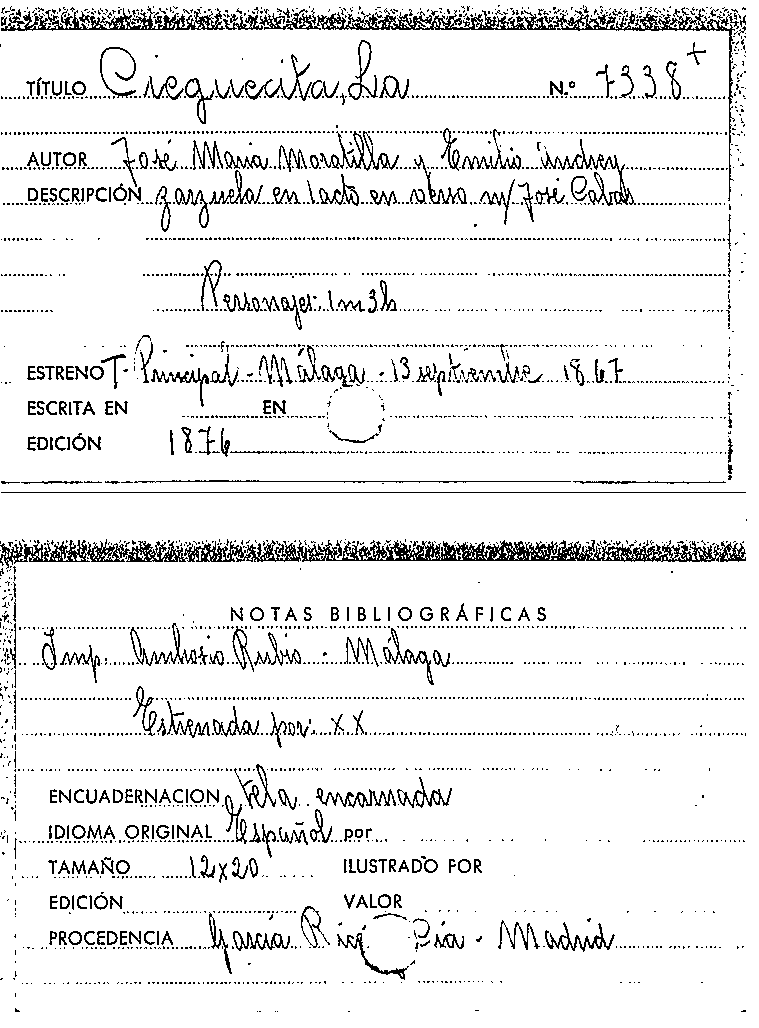 TÍTULO Cieguecita, La N.º 7338 +
AUTOR José Maria Moratilla y Emilio Andrey
DESCRIPCIÓN zarzuela en 1 acto en verso m/ José Cabas
Personajes: 1m 3h
ESTRENO T- Principal - Málaga - 13 septiembre 1867
ESCRITA EN EN
EDICIÓN 1876
NOTAS BIBLIOGRÁFICAS
Imp. Ambrosio Rubio - Málaga
Estrenada por: XX
ENCUADERNACION tela encarnada
IDIOMA ORIGINAL Español por
TAMAÑO 12x20 ILUSTRADO POR
EDICIÓN VALOR
PROCEDENCIA García Rico Cía - Madrid